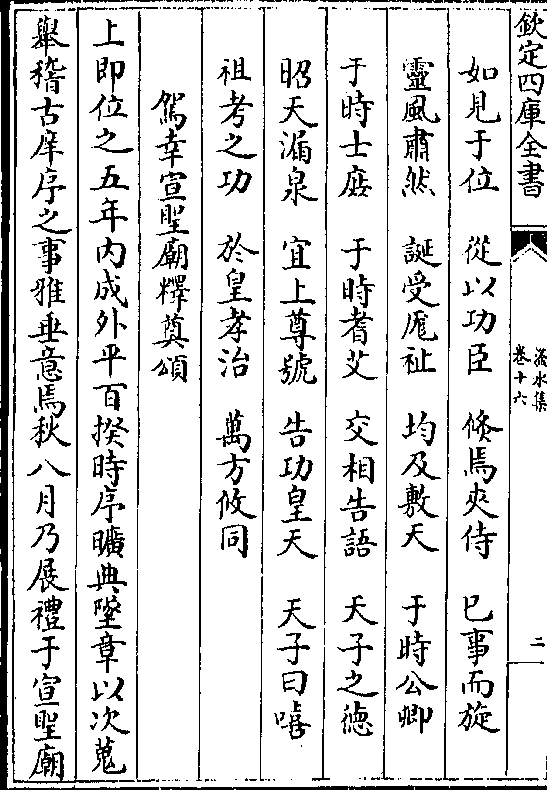 欽定四庫全書
滏水集
卷十六
二
如見于位 從以功臣 倏焉夾侍 已事而旋
靈風肅然 誕受厖祉 均及敷天 于時公卿
于時士庻 于時耆艾 交相告語 天子之德
昭天漏泉 宜上尊號 告功皇天 天子曰嘻
祖考之功 於皇孝治 萬方攸同
駕幸宣聖廟釋奠頌
上即位之五年内成外平百揆時序曠典墜章以次蒐
舉稽古庠序之事雅垂意焉秋八月乃展禮于宣聖廟